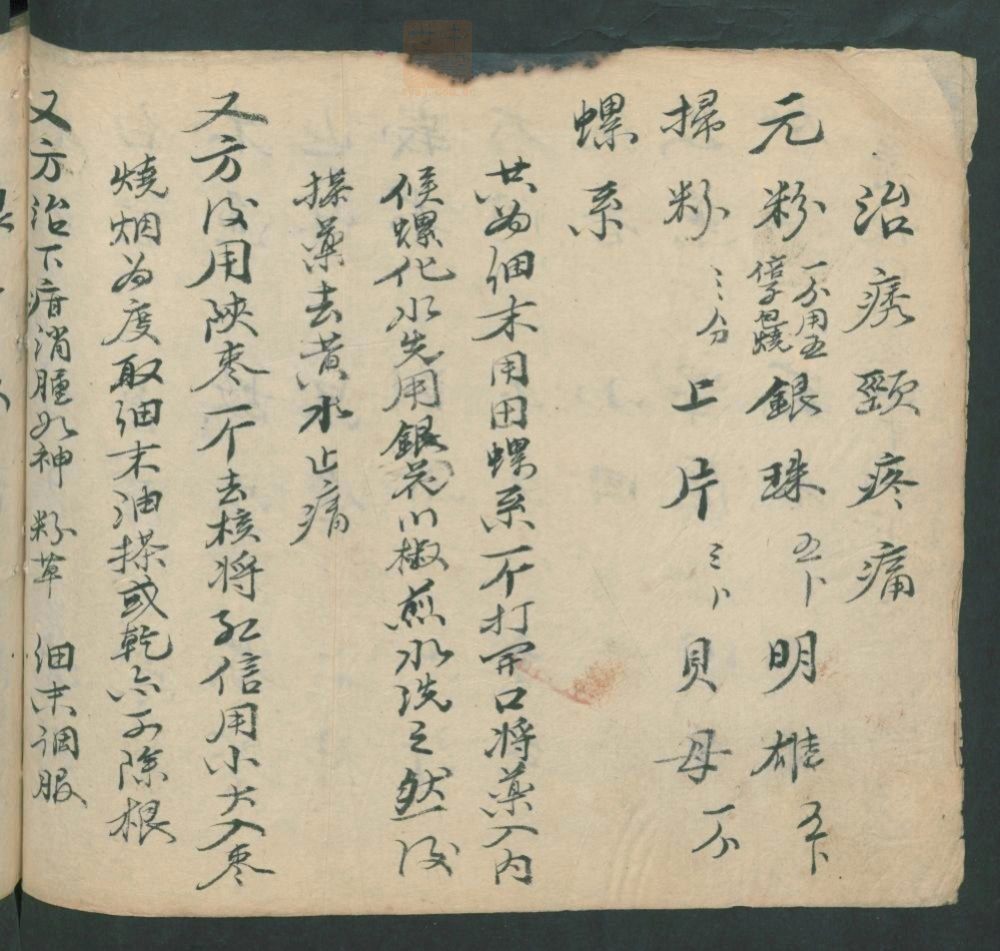 治痿頸疼痛
元粉 一分用五倍子包燒 銀珠 五卜 明雄 五卜
掃粉 三分 上片 三卜 貝母 一分
螺系
共為细末用田螺系一个打開口將藥入内
候螺化水先用銀花川椒煎水洗之然後
搽藥去黄水止痛
又方後用陝枣一个去核將红信用小大入枣
燒烟為度取细末油搽或乾亦可除根
又方治下疳消腫如神 粉草 细末调服